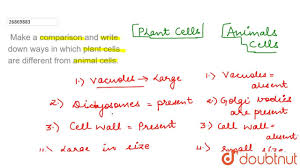 26869883
Make a comparison and write
down ways in which plant cells
are different from animal cells.
Plant Cells
Animals
Cells
1.) Vacuoles → Large
2) Dictyosomes = present
3.) Cell wall = Present
4.) Large in size
1.) Vacuoles = absent
2.) Golgi bodies are present
3) Cell wall = absent
4. small size
doubtnut